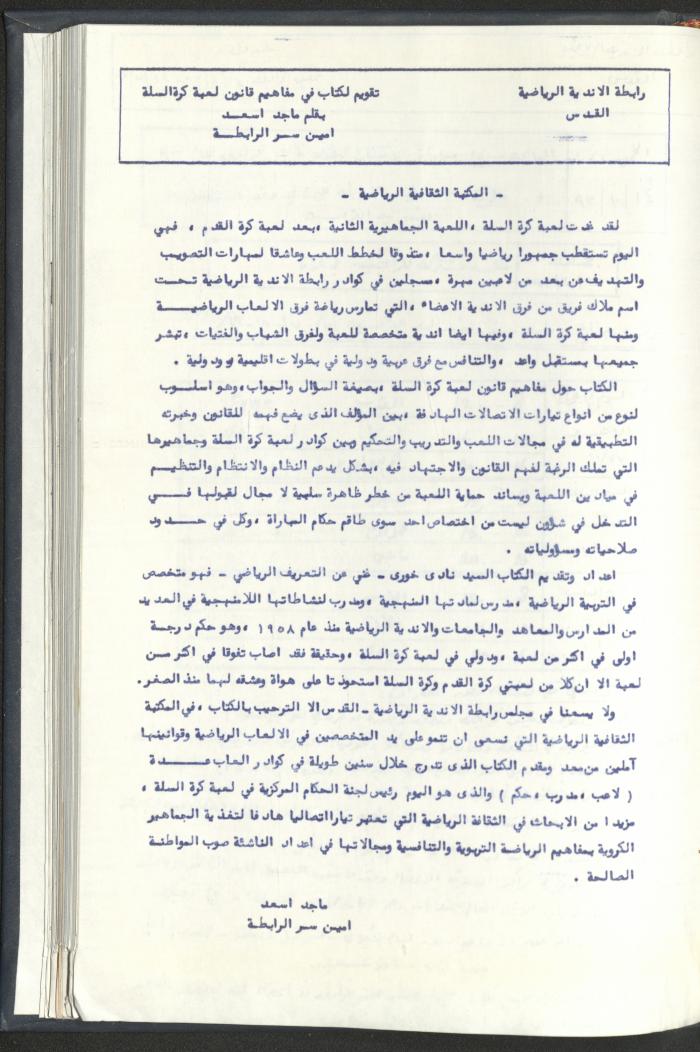 رابطة الاندية الرياضية
القدس
تقويم لكتاب في مفاهيم قانون لعبة كرة السلة
بقلم ماجد اسعد
امين سر الرابطة
- المكتبة الثقافية الرياضية -
لقد غدت لعبة كرة السلة ، اللعبة الجماهيرية الثانية ، بعد لعبة كرة القدم ، فهي
اليوم تستقطب جمهورا رياضيا واسعا ، متذوقا لخطط اللعب وعاشقا لمهارات التصويب
والتهديف عن بعد من لاعبين مهرة ، مسجلين في كوادر رابطة الاندية الرياضية تحت
اسم ملاك فريق من فرق الاندية الاعضاء ، التي تمارس رياضة فرق الالعاب الرياضية
ومنها لعبة كرة السلة ، وفيها ايضا اندية متخصصة للعبة ولفرق الشباب والفتيات ، تبشر
جميعها بمستقبل واعد ، والتنافس مع فرق عربية ودولية في بطولات اقليمية ودولية .
الكتاب حول مفاهيم قانون لعبة كرة السلة ، بصيغة السؤال والجواب ، وهو اسلوب
لنوع من انواع تيارات الاتصالات الهادفة ، بين المؤلف الذى يضع فهمه للقانون وخبرته
التطبيقية له في مجالات اللعب والتدريب والتحكيم وبين كوادر لعبة كرة السلة وجماهيرها
التي تملك الرغبة لفهم القانون والاجتهاد فيه ، بشكل يدعم النظام والانتظام والتنظيم
في ميادين اللعبة ويساند حماية اللعبة من خطر ظاهرة سلبية لا مجال لقبولها في
التدخل في شؤون ليست من اختصاص احد سوى طاقم حكام المباراة ، وكل في حدود
صلاحياته ومسؤولياته .
اعداد وتقديم الكتاب السيد نادى خورى - غني عن التعريف الرياضي - فهو متخصص
في التربية الرياضية ، مدرس لمادتها المنهجية ، ومدرب لنشاطاتها اللامنهجية في العديد
من المدارس والمعاهد والجامعات والاندية الرياضية منذ عام ١٩٥٨ ، وهو حكم درجة
اولى في اكثر من لعبة ، ودولي في لعبة كرة السلة ، وحقيقة فقد اصاب تفوقا في اكثر من
لعبة الا ان كلا من لعبتي كرة القدم وكرة السلة استحوذتا على هواة وعشقه لهما منذ الصغر .
ولا يسعنا في مجلس رابطة الاندية الرياضية - القدس الا الترحيب بالكتاب ، في المكتبة
الثقافية الرياضية التي تسعى ان تنمو على يد المتخصصين في الالعاب الرياضية وقوانينها
آملين من معد ومقدم الكتاب الذى تدرج خلال سنين طويلة في كوادر العاب عدة
( لاعب ، مدرب ، حكم ) والذى هو اليوم رئيس لجنة الحكام المركزية في لعبة كرة السلة ،
مزيدا من الابحاث في الثقافة الرياضية التي تعتبر تيارا اتصاليا هادفا لتغذية الجماهير
الكروية بمفاهيم الرياضة التربوية والتنافسية ومجالاتها في اعداد الناشئة صوب المواطنة
الصالحة .
ماجد اسعد
امين سر الرابطة